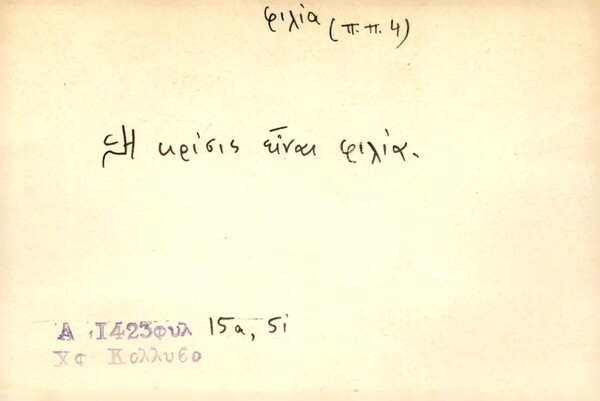 φιλία (π.π. 4)
Ἡ κρίσις εἶναι φιλία.
Α 1423φυλ 15α, 5i
Χφ Κολλυβο